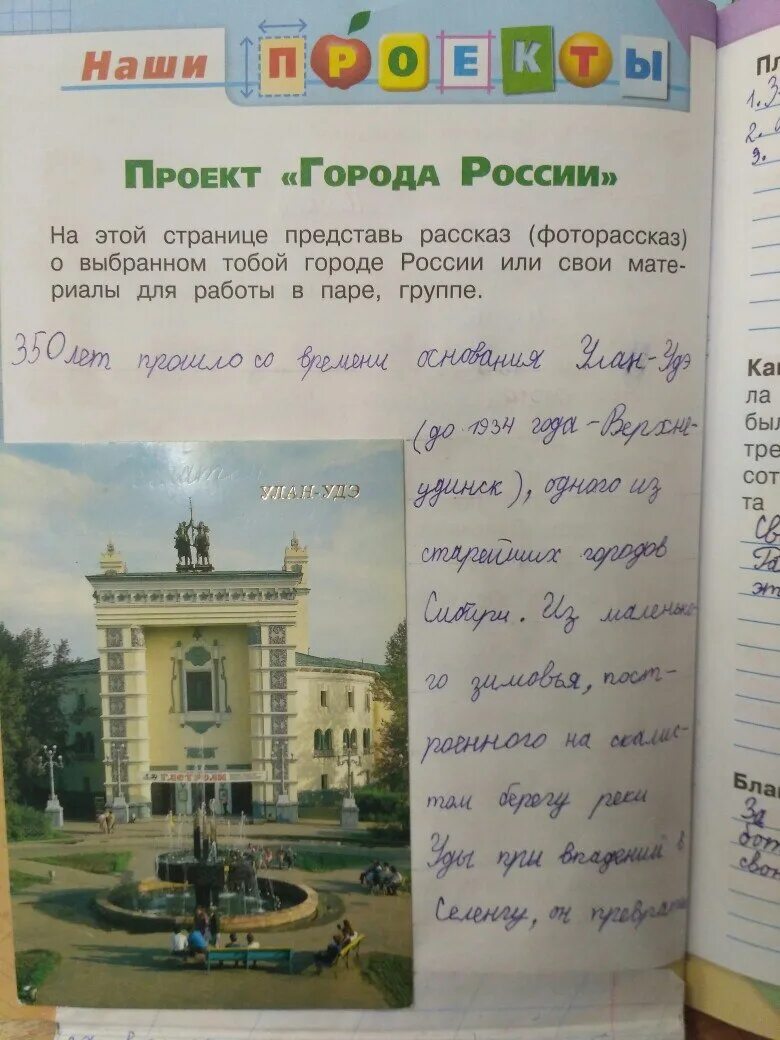 Наши ПРОЕКТЫ
ПРОЕКТ «ГОРОДА РОССИИ»
На этой странице представь рассказ (фоторассказ)
о выбранном тобой городе России или свои мате-
риалы для работы в паре, группе.
350 лет прошло со времени основания Улан-Удэ
(до 1934 года - Верхне-
удинск), одного из
старейших городов
Сибири. Из маленько-
го зимовья, пост-
роенного на скалис-
том берегу реки
Уды при впадений в
Селенгу, он превра
УЛАН-УДЭ
ГАСТРОЛИ
Пл
1. З
2.
3.
Ка
ла
был
тре
сот
та
Св
Га
эт
Бла
За
бот
свон